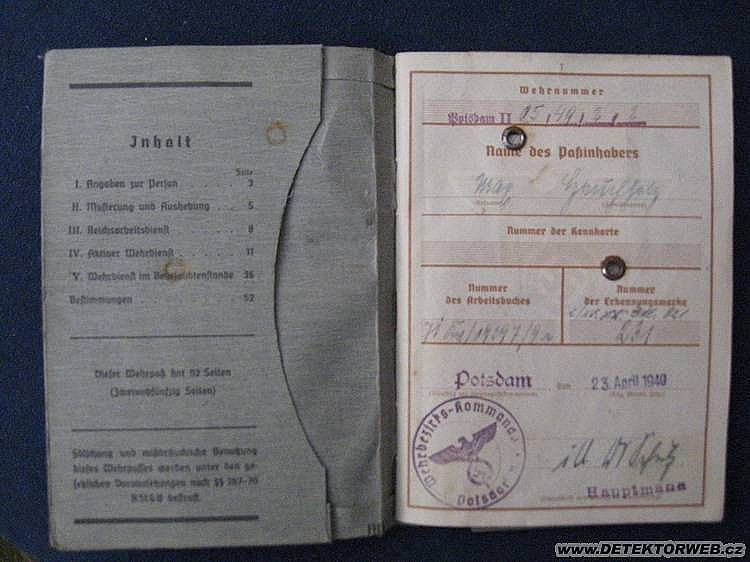 Inhalt
Seite
I. Angaben zur Person . . . . 3
II. Musterung und Aushebung . . 5
III. Reichsarbeitsdienst . . . . 8
IV. Aktiver Wehrdienst . . . . 11
V. Wehrdienst im Beurlaubtenstande 36
Bestimmungen . . . . . . 52
Dieser Wehrpaß hat 52 Seiten
(Zweiundfünfzig Seiten)
Fälschung und mißbräuchliche Benutzung
dieses Wehrpasses werden unter den ge-
setzlichen Voraussetzungen nach §§ 267-70
RStGB bestraft.
1
Wehrnummer
Potsdam II 05/19/5/2
Name des Paßinhabers
Max
Nummer der Kennkarte
Nummer
des Arbeitsbuches
Nummer
der Erkennungsmarke
231
Potsdam den 23. April 1940
Wehrbezirks-Kommando
Potsdam
Hauptmann
www.DETEKTORWEB.cz